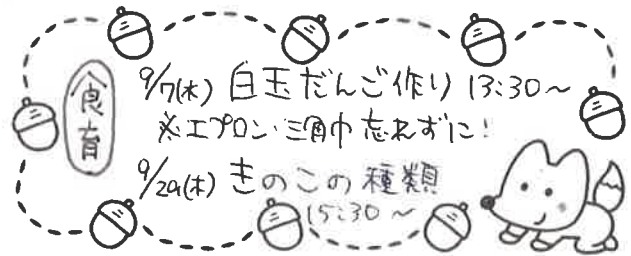 食育
9/7(水) 白玉だんご作り 13:30〜
※エプロン・三角巾 忘れずに!
9/29(木) きのこの種類
15:30〜